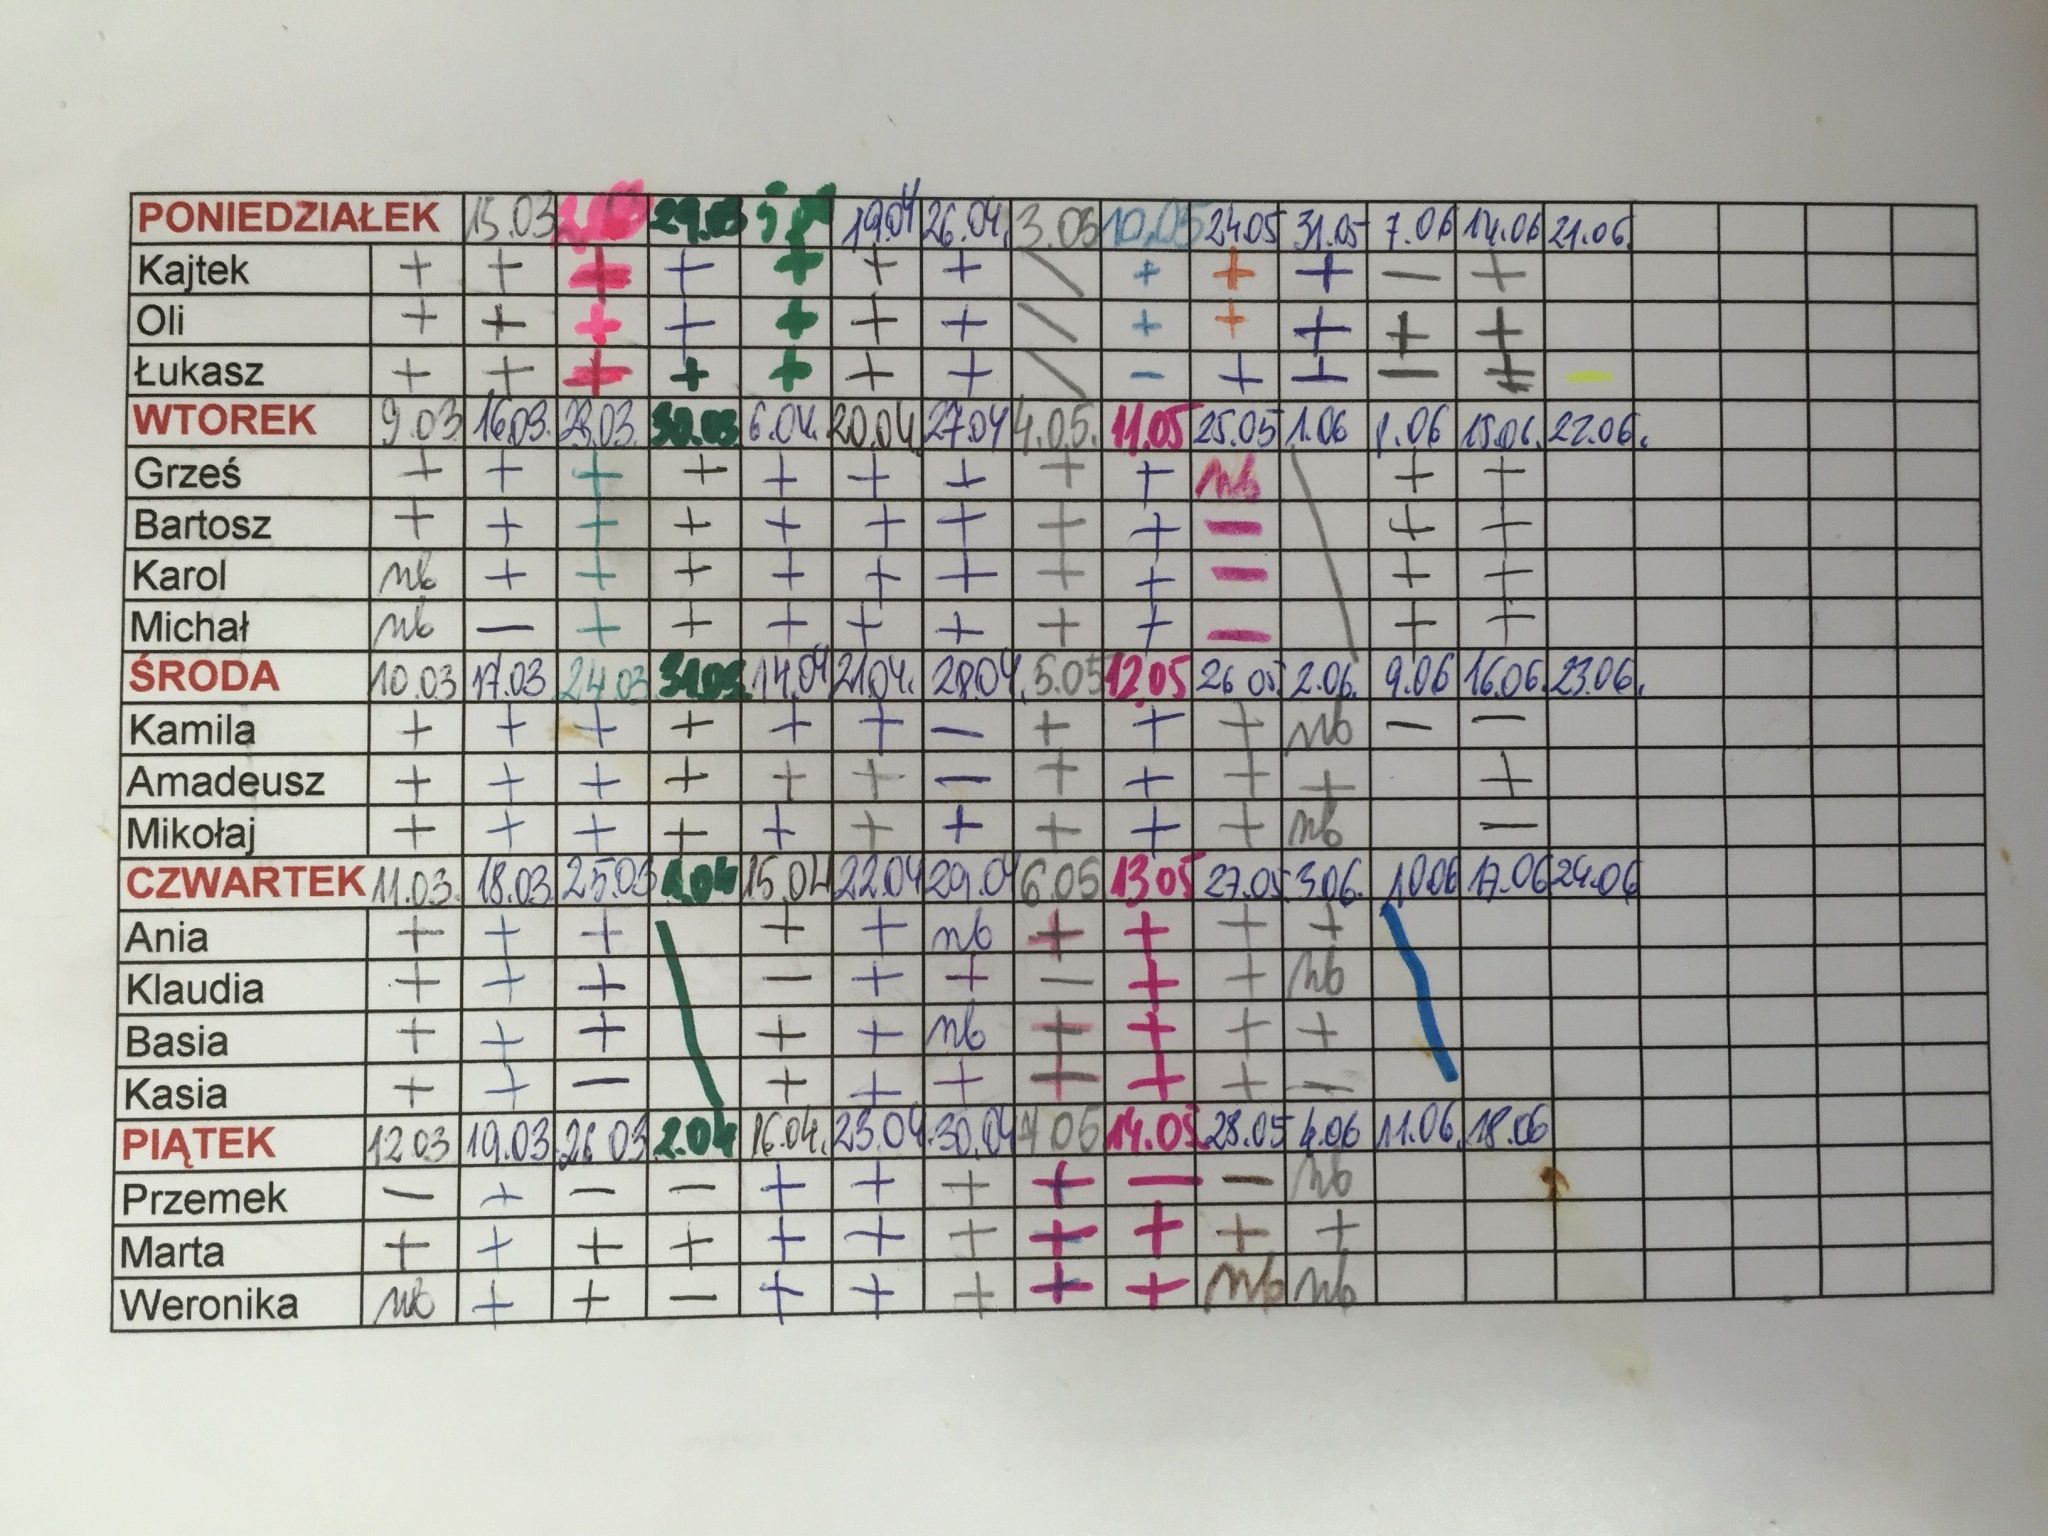 PONIEDZIAŁEK 15.03 29.03 19.04 26.04. 3.05 10.05 24.05 31.05 7.06 14.06 21.06.
Kajtek + + + + + + + \ + + + — +
Oli + + + + + + + \ + + + + +
Łukasz + + + + + + + \ — + + — + —
WTOREK 9.03 16.03. 23.03. 30.03 6.04. 20.04 27.04 4.05. 11.05 25.05 1.06 8.06 15.06. 22.06.
Grześ + + + + + + + + + nb + +
Bartosz + + + + + + + + + — + +
Karol nb + + + + + + + + — + +
Michał nb — + + + + + + + — + +
ŚRODA 10.03 17.03 24.03 31.03. 14.04 21.04. 28.04. 5.05 12.05 26.05 2.06. 9.06 16.06. 23.06.
Kamila + + + + + + — + + + nb — —
Amadeusz + + + + + + — + + + + +
Mikołaj + + + + + + + + + + nb —
CZWARTEK 11.03. 18.03 25.03 1.04 15.04 22.04 29.04 6.05 13.05 27.05 3.06. 10.06 17.06 24.06
Ania + + + + + nb + + + +
Klaudia + + + — + + — + + nb
Basia + + + + + nb + + + +
Kasia + + — + + + + + + —
PIĄTEK 12.03 19.03 26.03 2.04 16.04. 23.04. 30.04 7.05 14.05 28.05 4.06 11.06. 18.06
Przemek — + — — + + + + — — nb
Marta + + + + + + + + + + +
Weronika nb + + — + + + + + nb nb